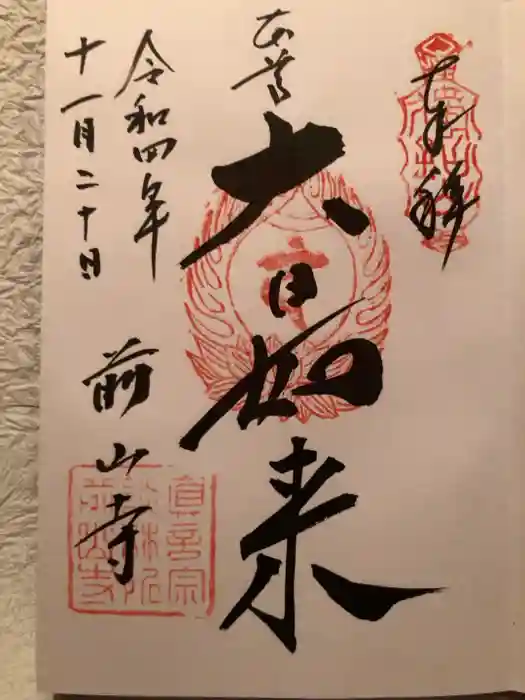 奉拝
本尊
大日如来
令和四年
十一月二十日
前山寺
真言宗